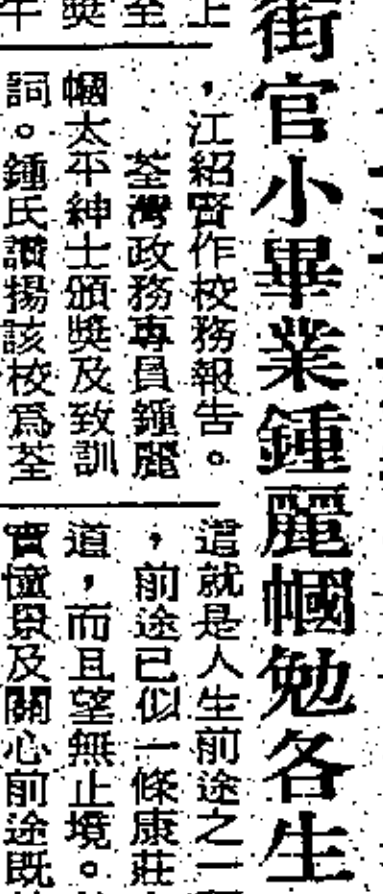 街官小畢業鍾麗幗勉各生
，江紹賢作校務報告。
荃灣政務專員鍾麗
幗太平紳士頒獎及致訓
詞。鍾氏讚揚該校爲荃
這就是人生前途之一
，前途已似一條康莊
道，而且望無止境。
實憧景及關心前途既